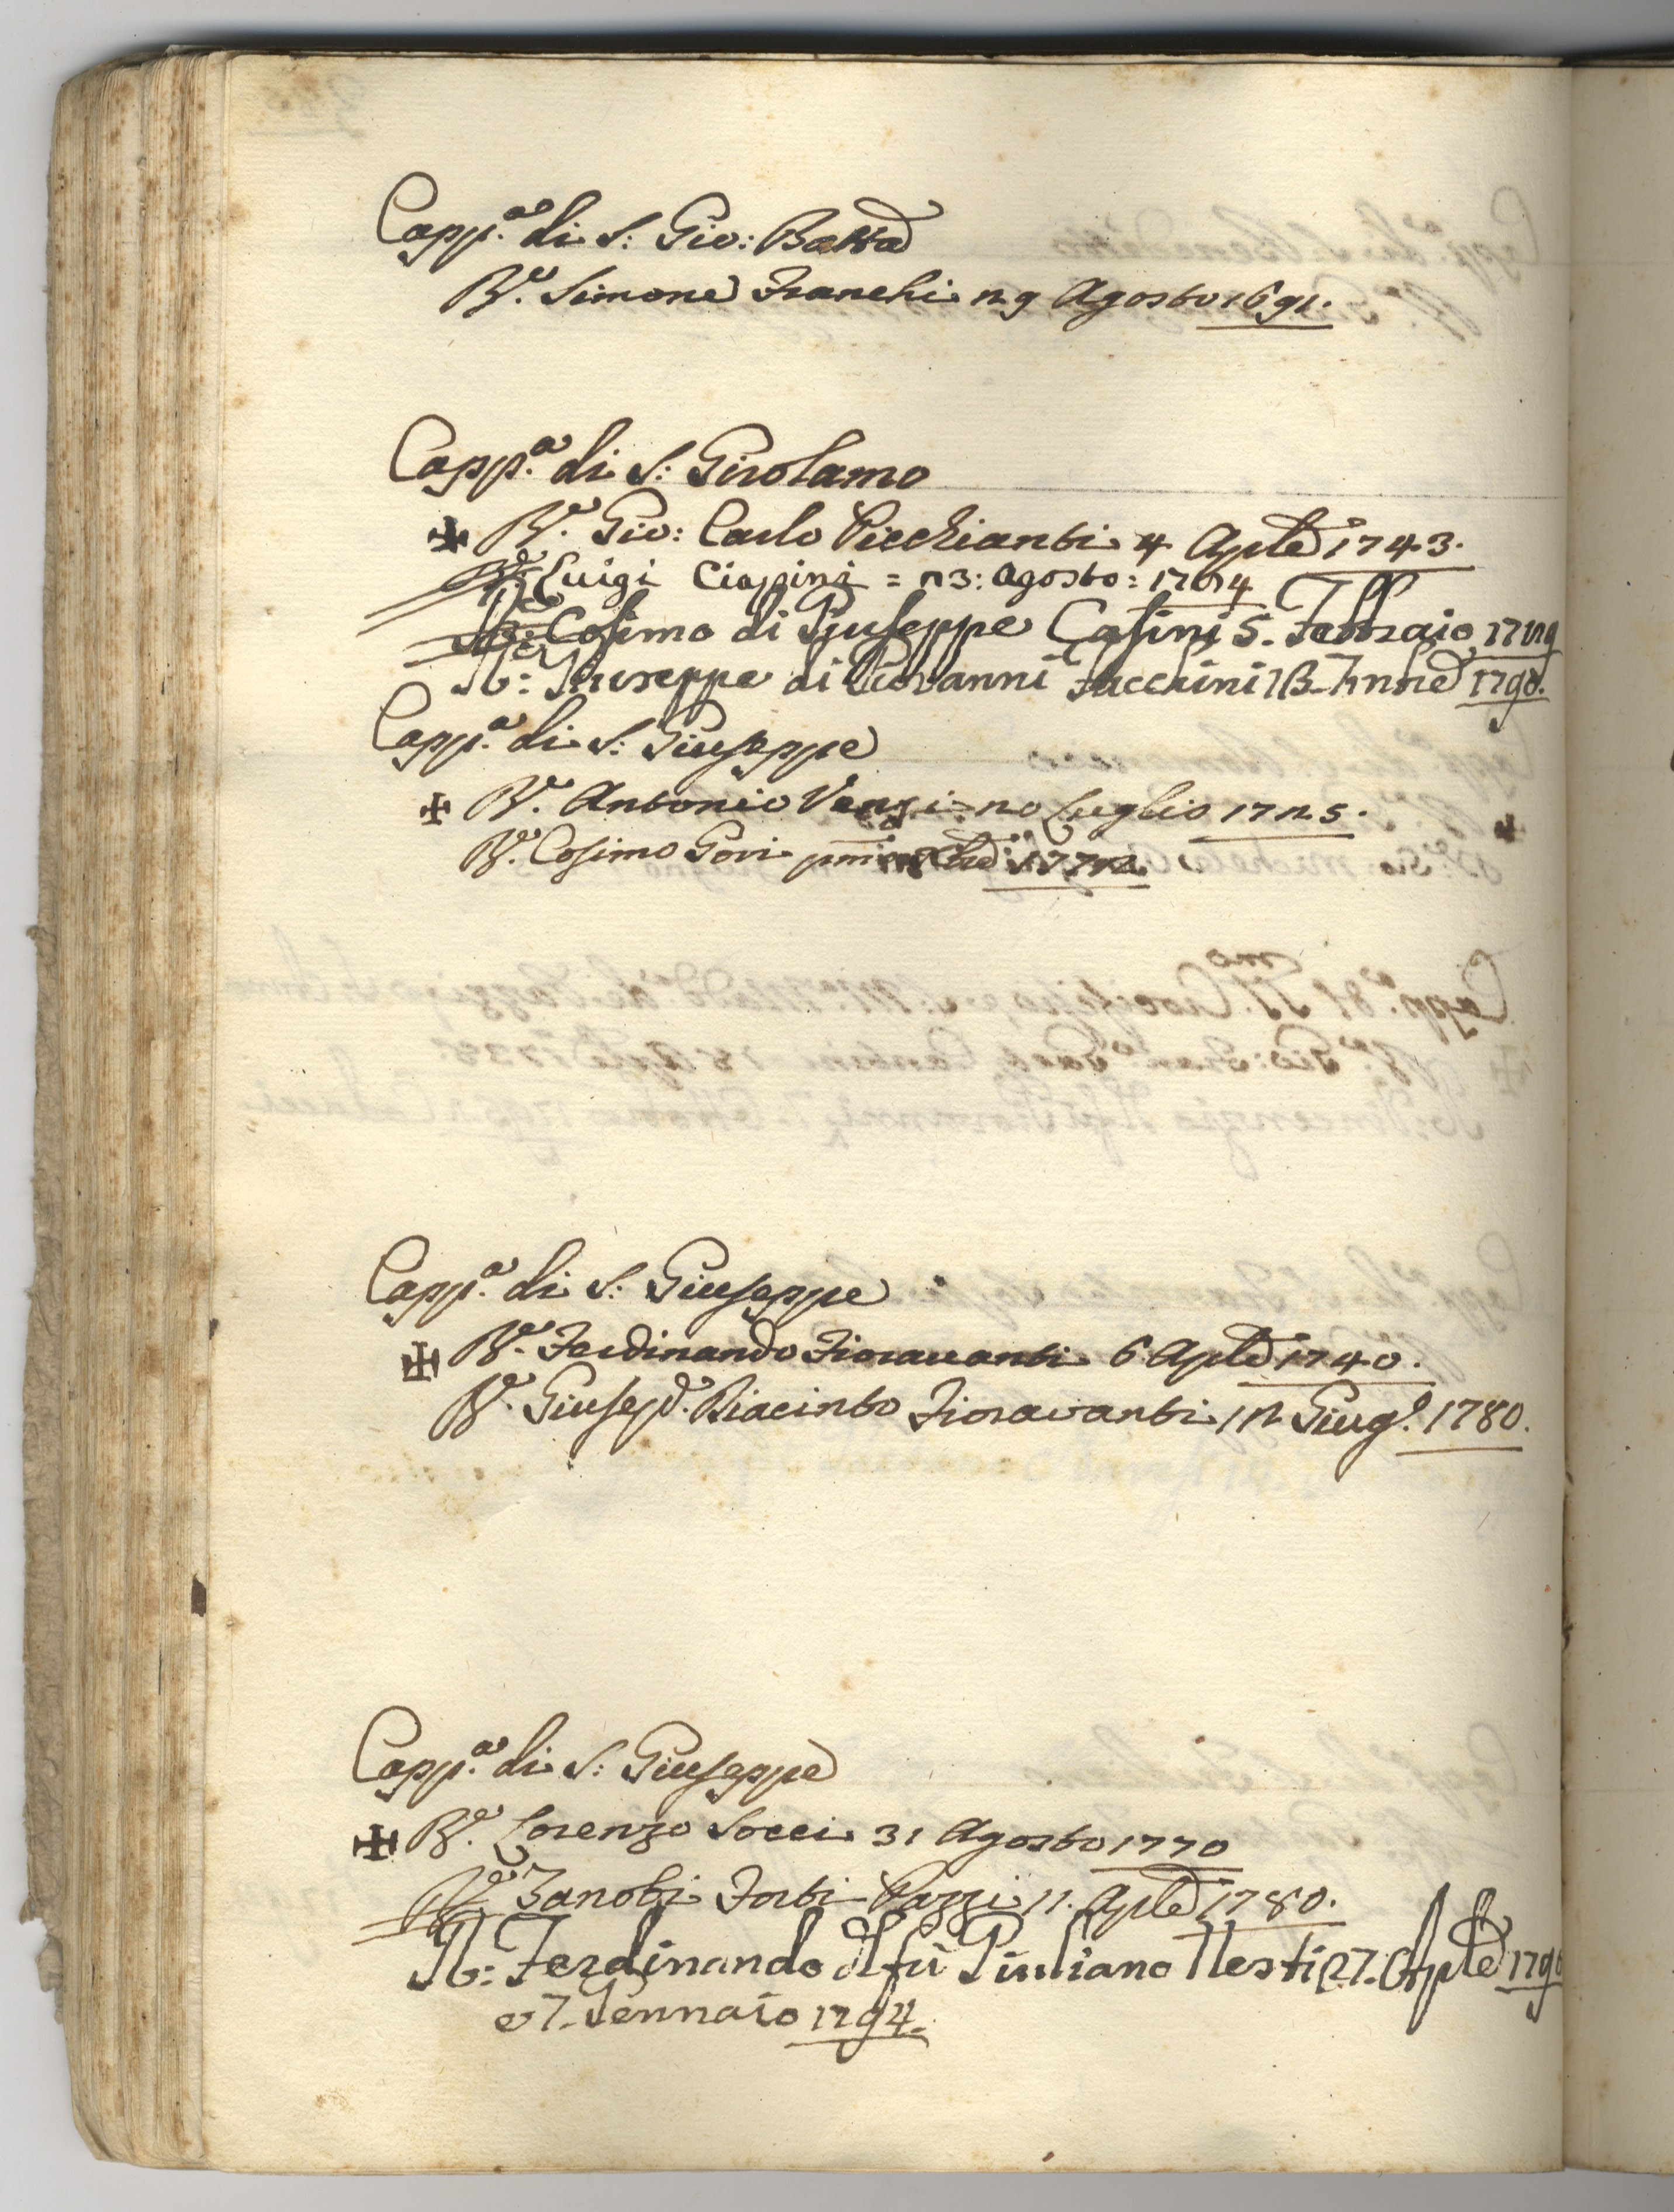 Capp.a di S: Gio: Batta
R.e Simone Franchi 29 Agosto 1691.
Capp.a di S: Girolamo
✠ R.e Gio: Carlo Picchianti 4 Aple 1743.
R.e Luigi Ciappini = 23: Agosto: 1764
R.e Cosimo di Giuseppe Casini 5. Febbraio
R.e Giuseppe di Giovanni Facchini 1790.
Capp.a di S: Giuseppe
✠ R.e Antonio Venzi 20 Luglio 1725.
R.e Cosimo Gori pmo 1772
Capp.a di S: Giuseppe
✠ R.e Ferdinando Fioravanti 6 Aple 1740.
R.e Giusep.e Giacinto Fioravanti 12 Giug.o 1780.
Capp.a di S: Giuseppe
✠ R.e Lorenzo Socci 31 Agosto 1770
R.e Zanobi Forti Pazzi 11. Aple 1780.
R.e Ferdinando del fù Giuliano Nesti 27. Aple
e 7. Gennaio 1794.